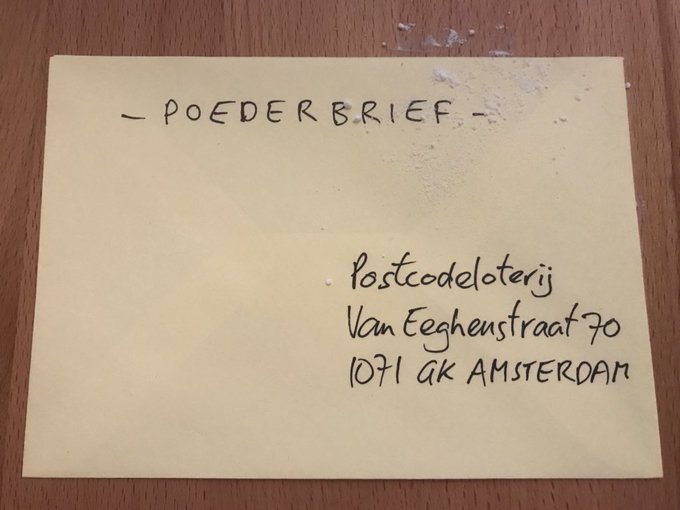 - POEDERBRIEF -
Postcodeloterij
Van Eeghenstraat 70
1071 GK AMSTERDAM